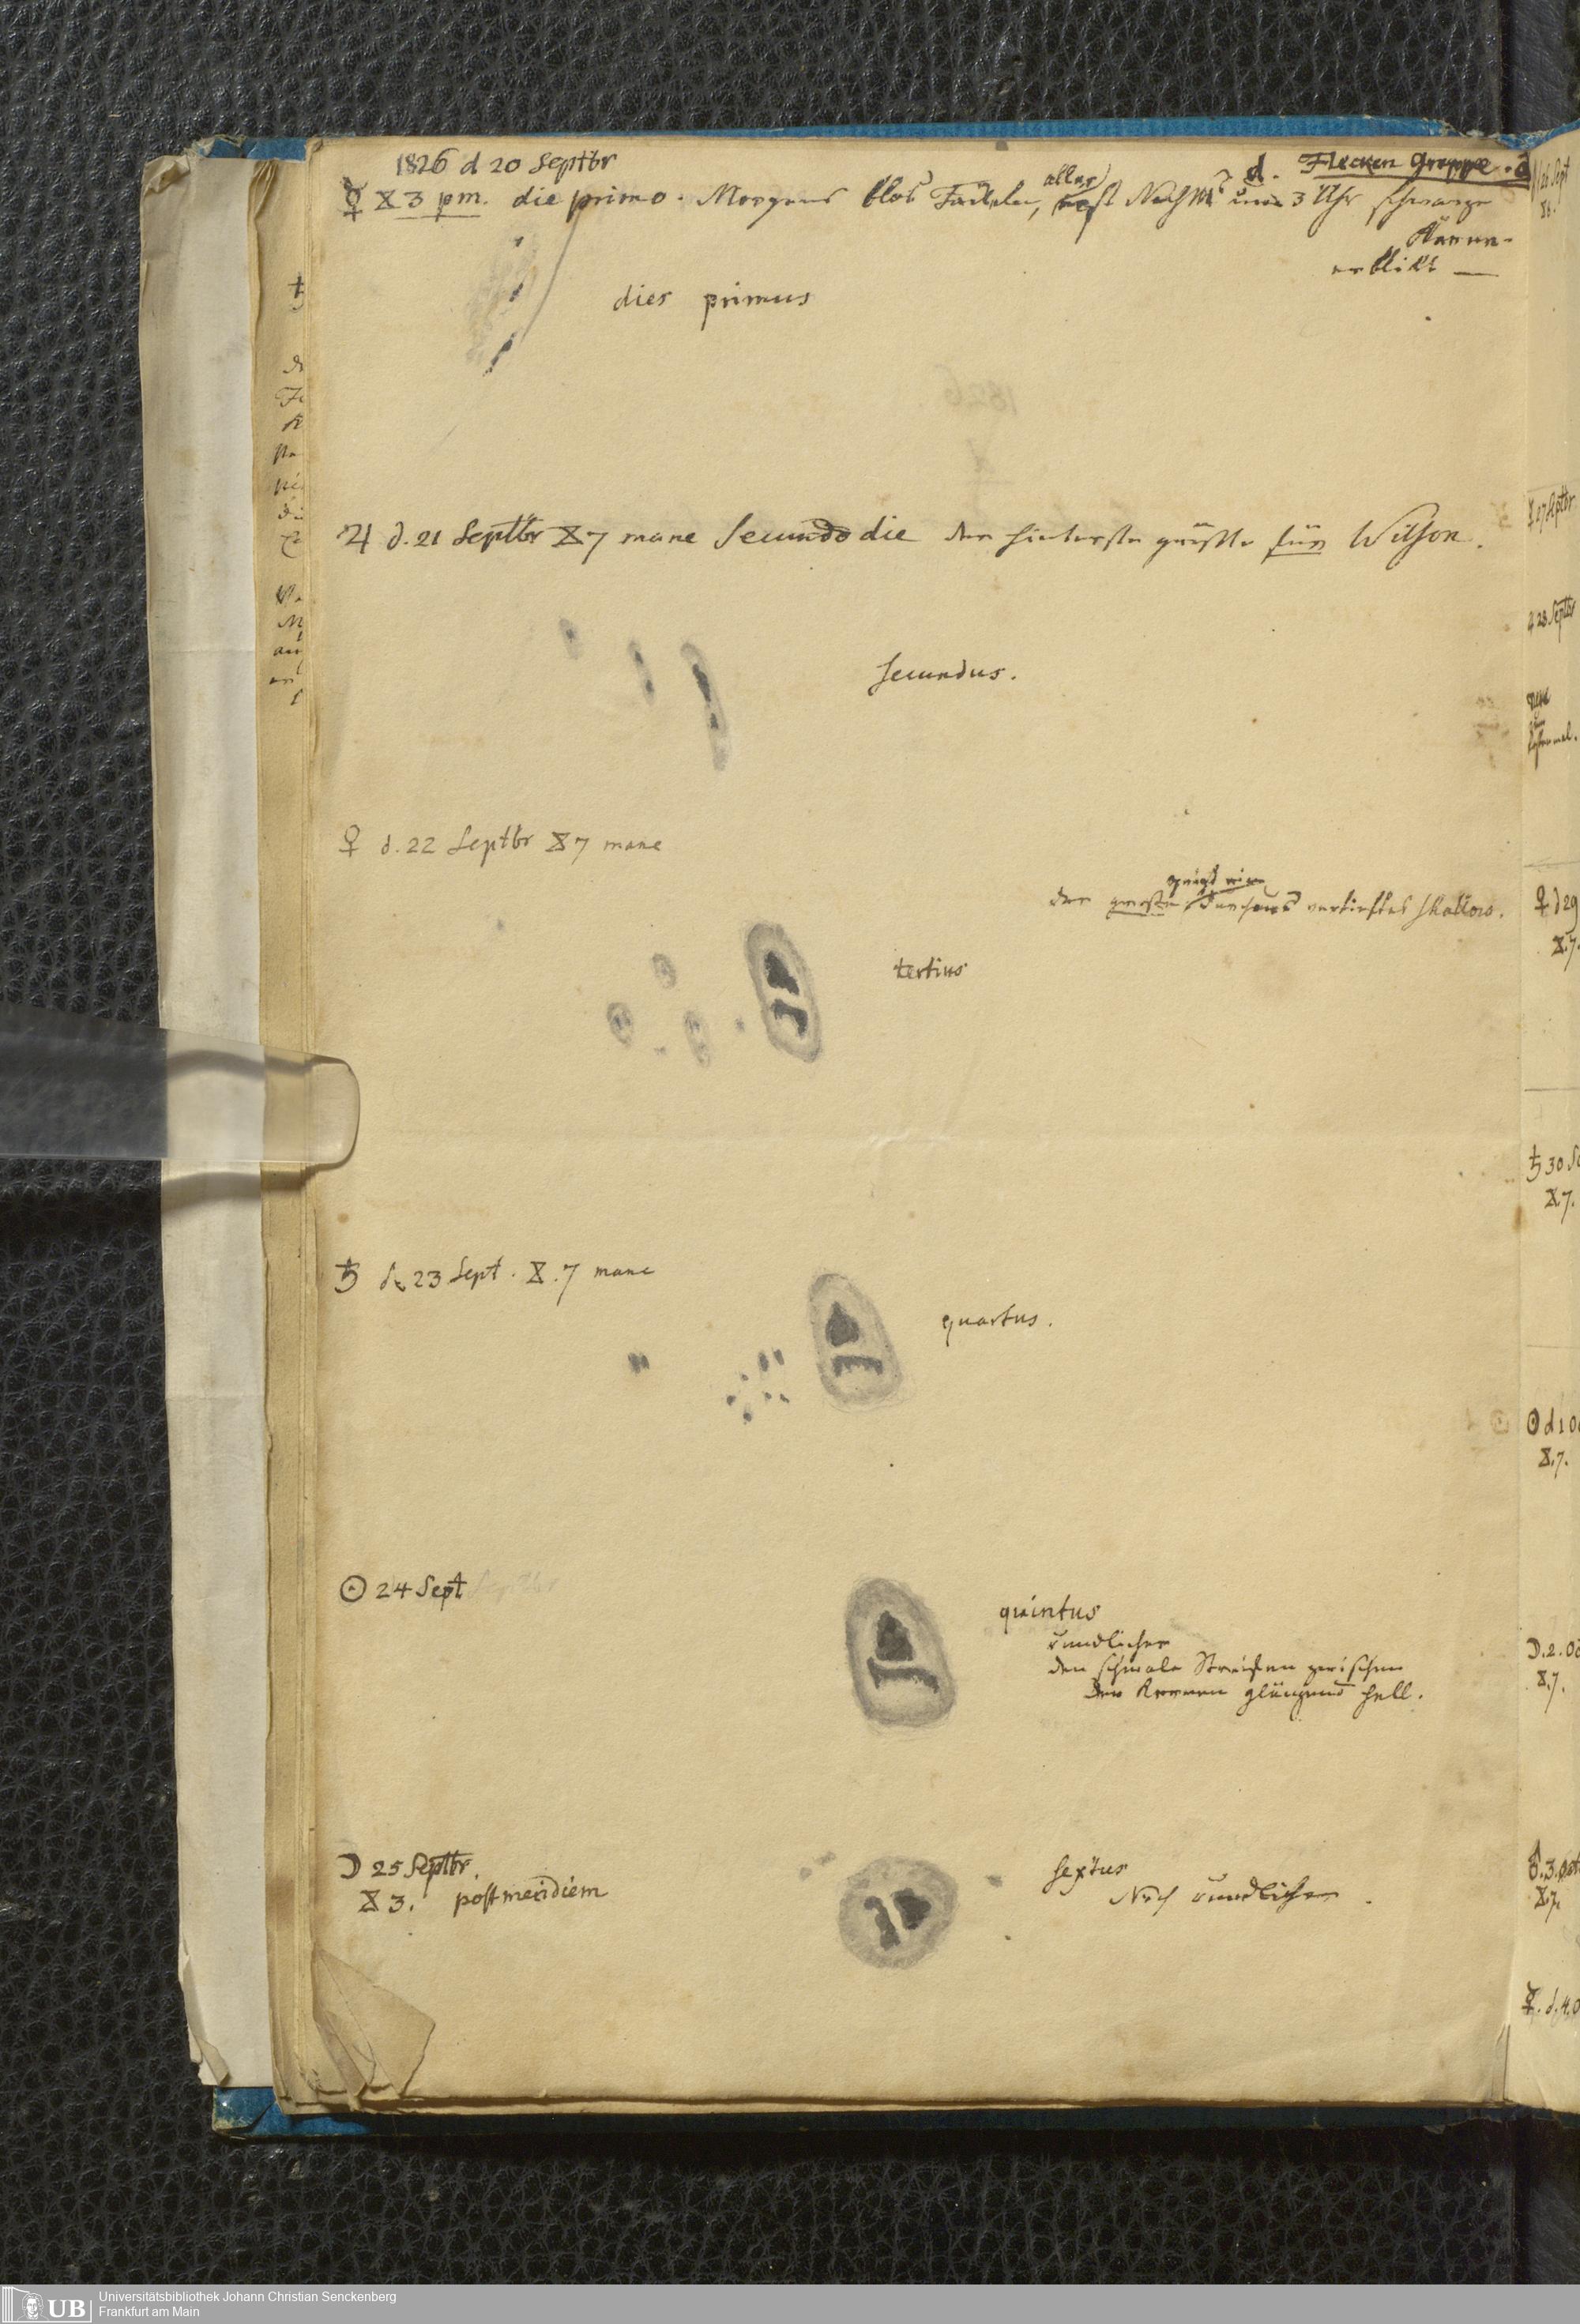 1826 d 20 Septbr
d. Flecken Gruppe . d
☿ X 3 pm. die primo. Morgens blos Fackeln, aller erst Nachm um 3 Uhr schwarze
Kerne
erblikt —
dies primus
♃ d. 21 Septbr X 7 mane Secundo die der hinterste größte für Wilson.
secundus.
♀ d. 22 Septbr X 7 mane
zeigt ein
der groeste durchaus vertieftes shallow.
tertius
♄ d. 23 Sept. X. 7 mane
quartus.
☉ 24 Sept
quintus
rundlicher
der schmale Streifen zwischen
den Kernen glänzend hell.
☽ 25 Septbr.
X 3. postmeridiem
sextus
Noch rundlicher.
27 Septbr
28 Septbr
♀ d 29
X. 7.
♄ 30 S
X 7.
☉ d 1 O
X. 7.
☽. 2. O
X. 7.
♂. 3. Oct
X. 7.
☿. d. 4. O
UB
Universitätsbibliothek Johann Christian Senckenberg
Frankfurt am Main